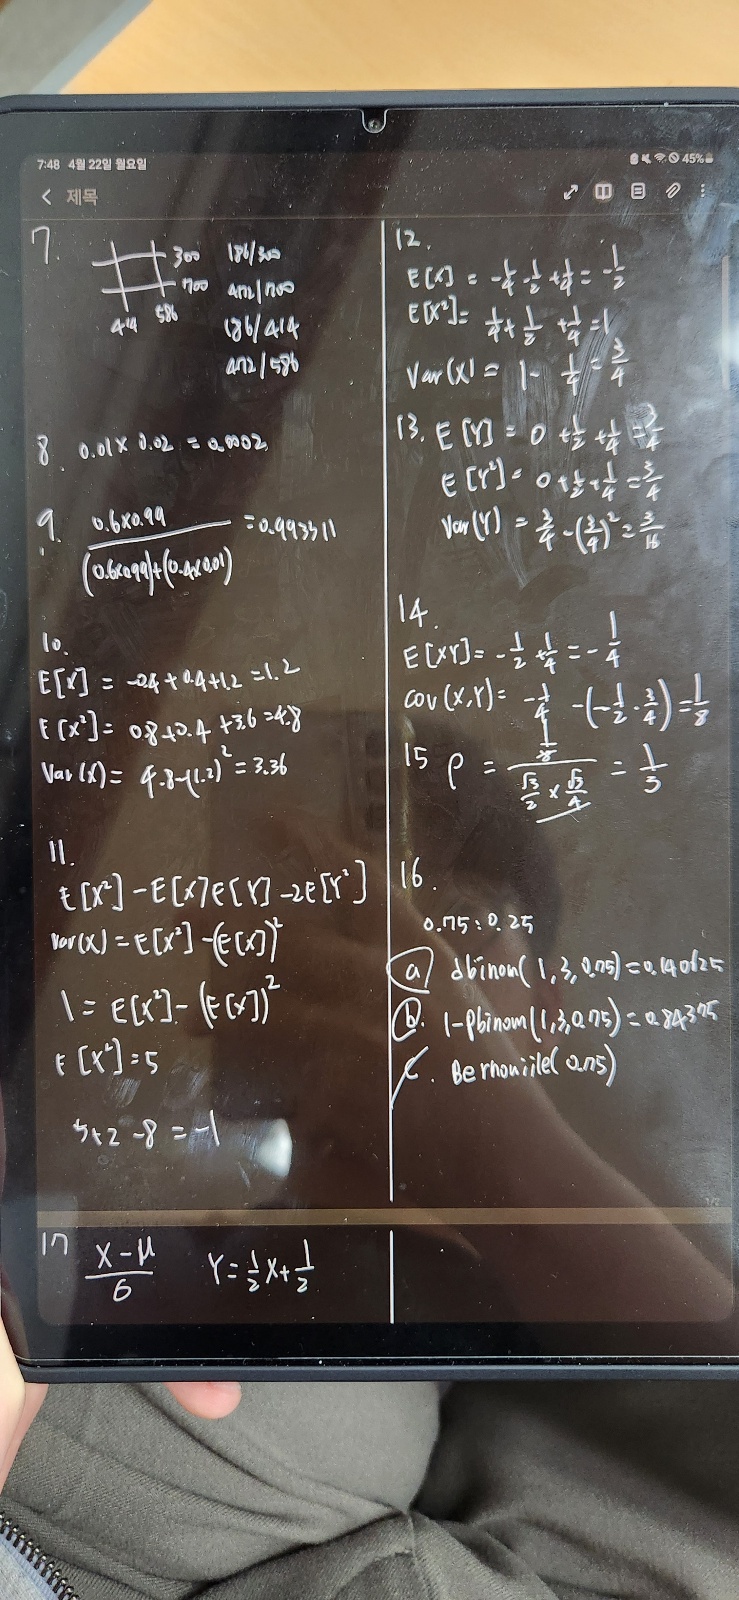 7:48 4월 22일 월요일
45%
제목
7.
300 186/300
700 412/700
414 586 186/414
412/586
8. 0.01 x 0.02 = 0.0002
9. 0.6x0.99 = 0.993311
(0.6x0.99)+(0.4x0.01)
10.
E[X] = -0.4+0.4+1.2 = 1.2
E[X²] = 0.8+0.4+3.6 = 4.8
Var(X) = 4.8-(1.2)² = 3.36
11.
E[X²] - E[X]E[Y] - 2E[Y²]
Var(X) = E[X²] - (E[X])²
1 = E[X²] - (E[X])²
E[X²] = 5
5+2-8 = -1
12.
E[X] = -1/4 - 1/2 + 1/4 = -1/2
E[X²] = 1/4 + 1/2 + 1/4 = 1
Var(X) = 1 - 1/4 = 3/4
13. E[Y] = 0 + 1/2 + 1/4 = 3/4
E[Y²] = 0 + 1/2 + 1/4 = 3/4
Var(Y) = 3/4 - (3/4)² = 3/16
14.
E[XY] = -1/2 + 1/4 = -1/4
COV(X,Y) = -1/4 - (-1/2 · 3/4) = 1/8
15 ρ = (1/8)/(√3/2 x √3/4) = 1/3
16.
0.75 : 0.25
a) dbinom(1,3,0.75) = 0.140625
b. 1-pbinom(1,3,0.75) = 0.84375
c. Bernouiile(0.75)
17 (X-μ)/6 Y = 1/2 X + 1/2